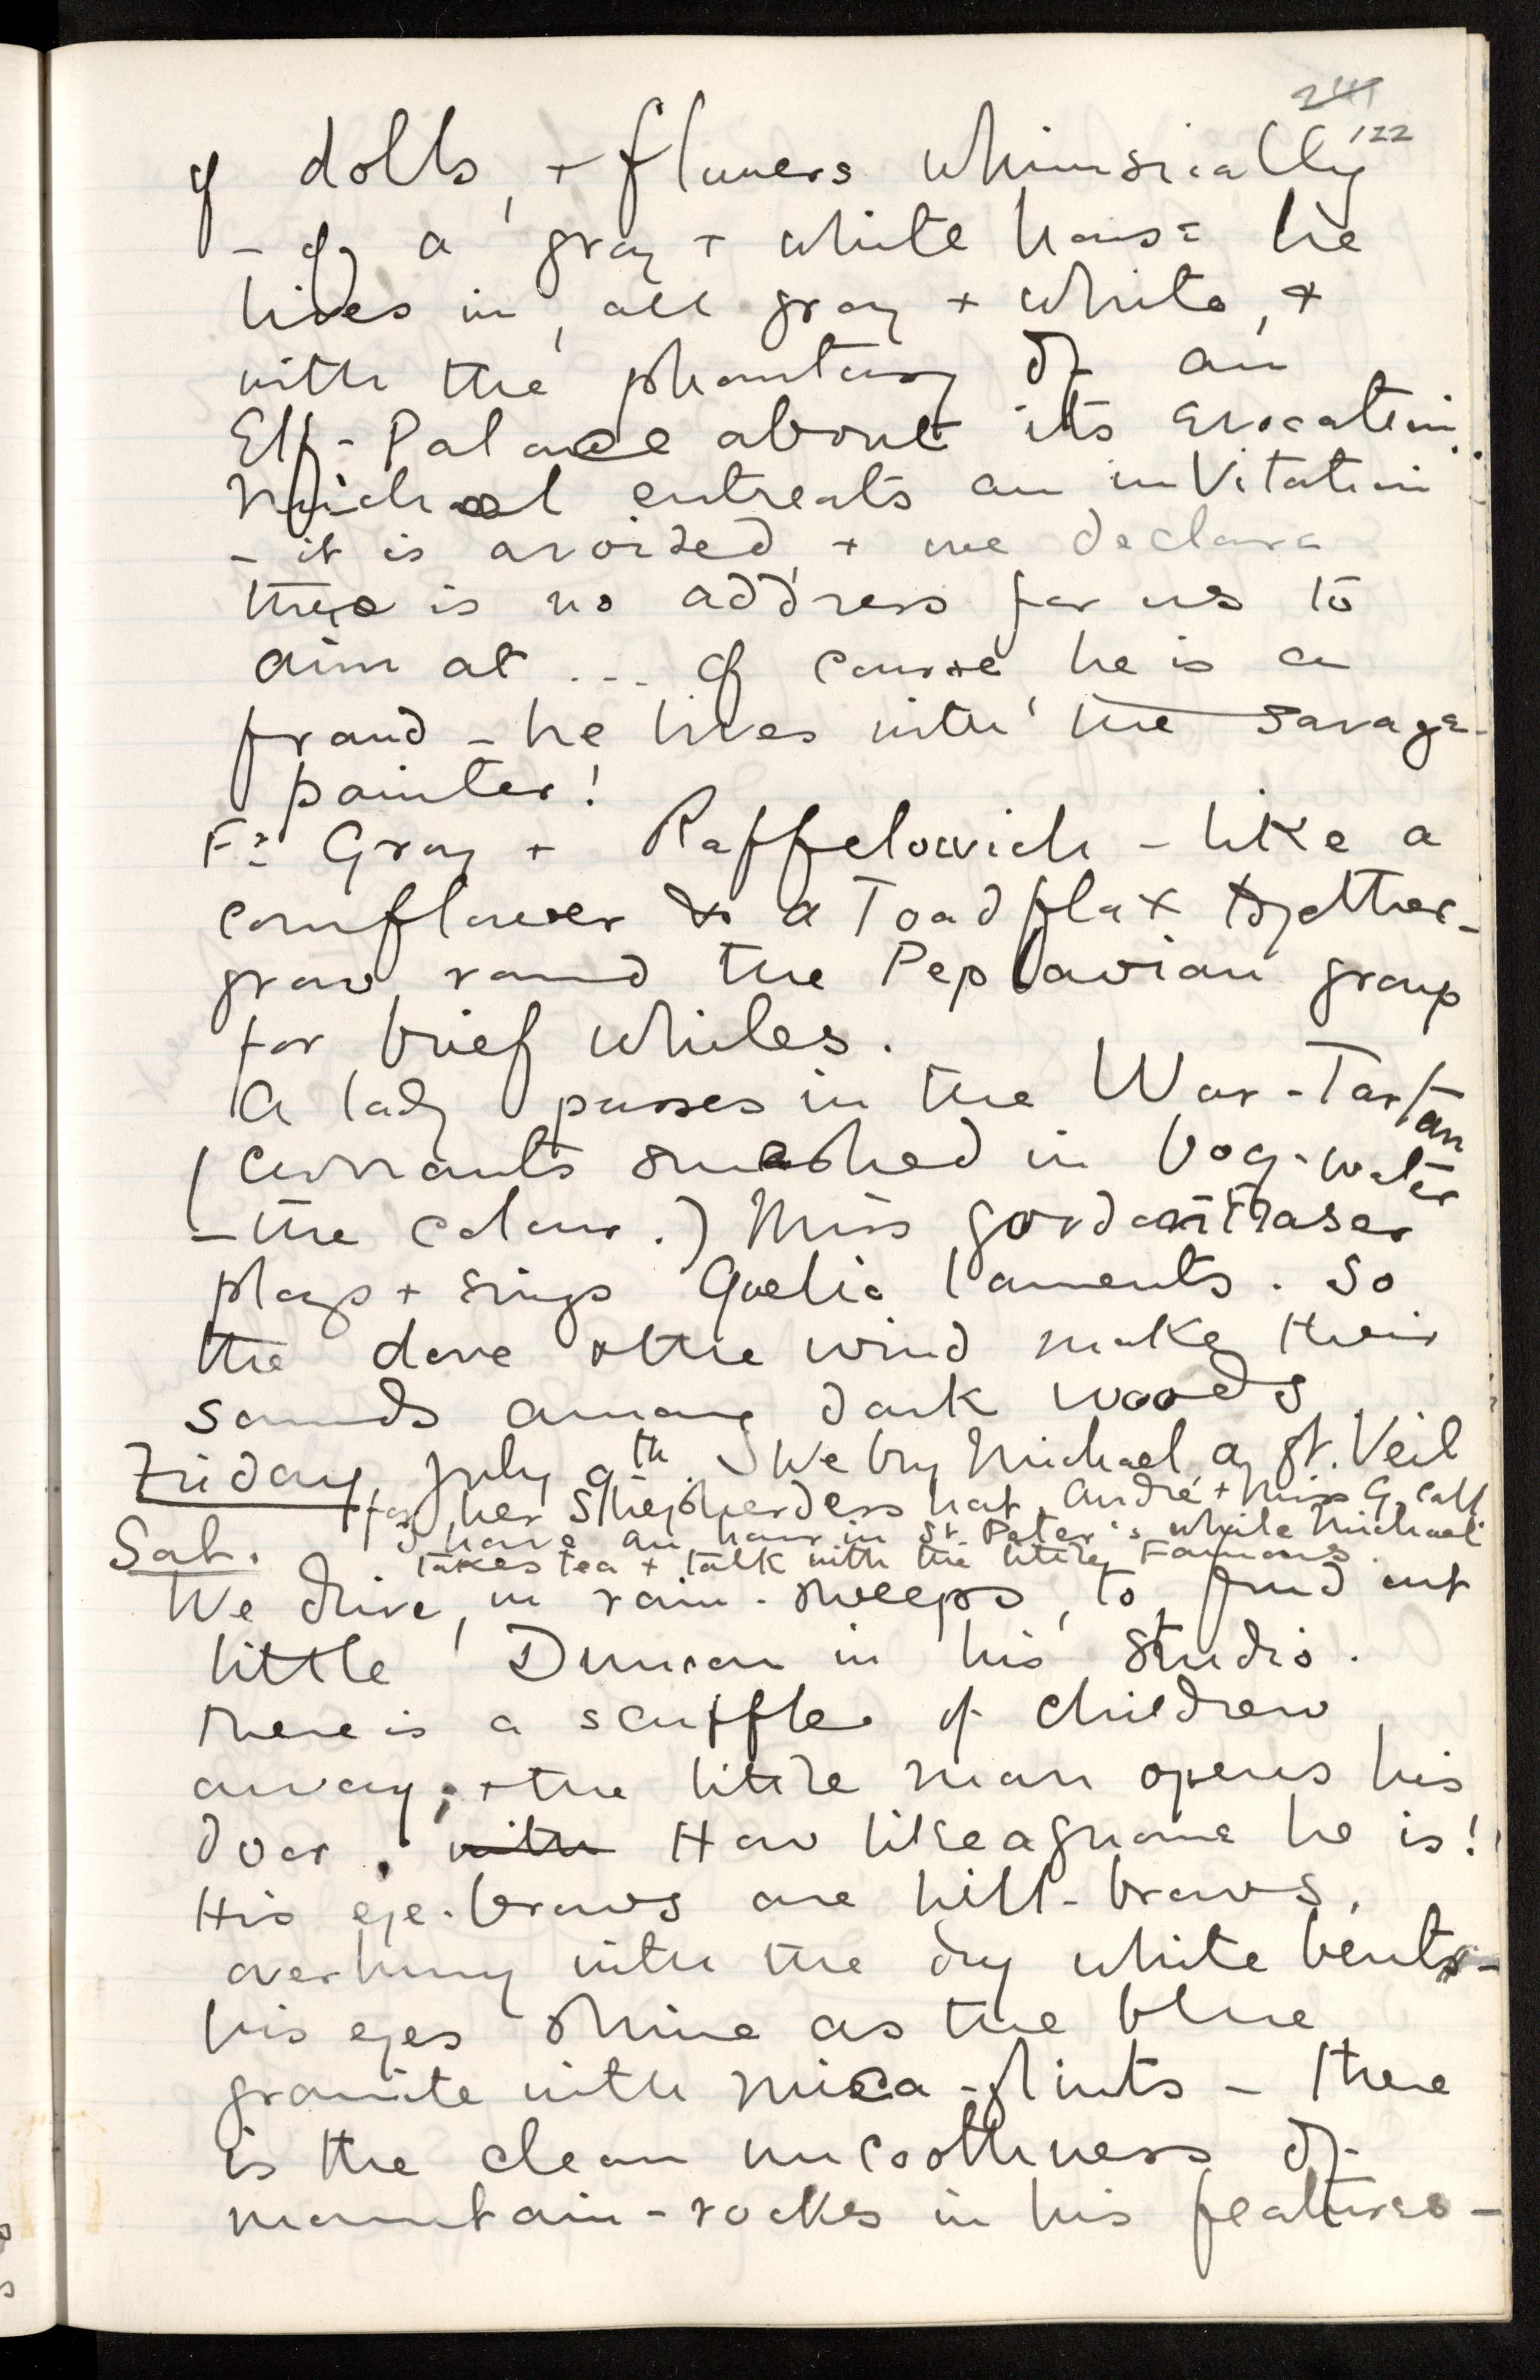 241
122
of dolls, + flowers whimsically
- of a gray + white house he
lives in, all gray + white, +
with the phantasy of an
Elf-Palace about its evocation.
Michael entreats an invitation
- it is avoided, + we declare
there is no address for us to
aim at ... Of course, he is a
fraud - he lives with the savage-
painter!
Fr Gray + Raffelowich - like a
cornflower & a Toadflax together-
grow round the Peplavian group
for brief whiles.
A lady passes in the War-Tartan
(currants smashed in bog-water
- the colour.) Miss Gordon Fraser
plays + sings Gaelic laments. So
the dove + the wind make their
sounds among dark woods
Friday, July 9th. We buy Michael a gt. Veil
for her Shepherdess hat. André + Miss G. call
Sat. I have an hour in St. Peter's while Michael
takes tea + talk with the little Famous.
We drive, in rain-sweeps, to find out
little Duncan in his Studio.
There is a scuffle of children
away; + the little man opens his
door. with How like a gnome he is!
His eye-brows are hill-brows,
overhung with the dry white bents-
his eyes shine as the blue
granite with mica-flints - there
is the clean uncoothness of
mountain-rocks in his features -